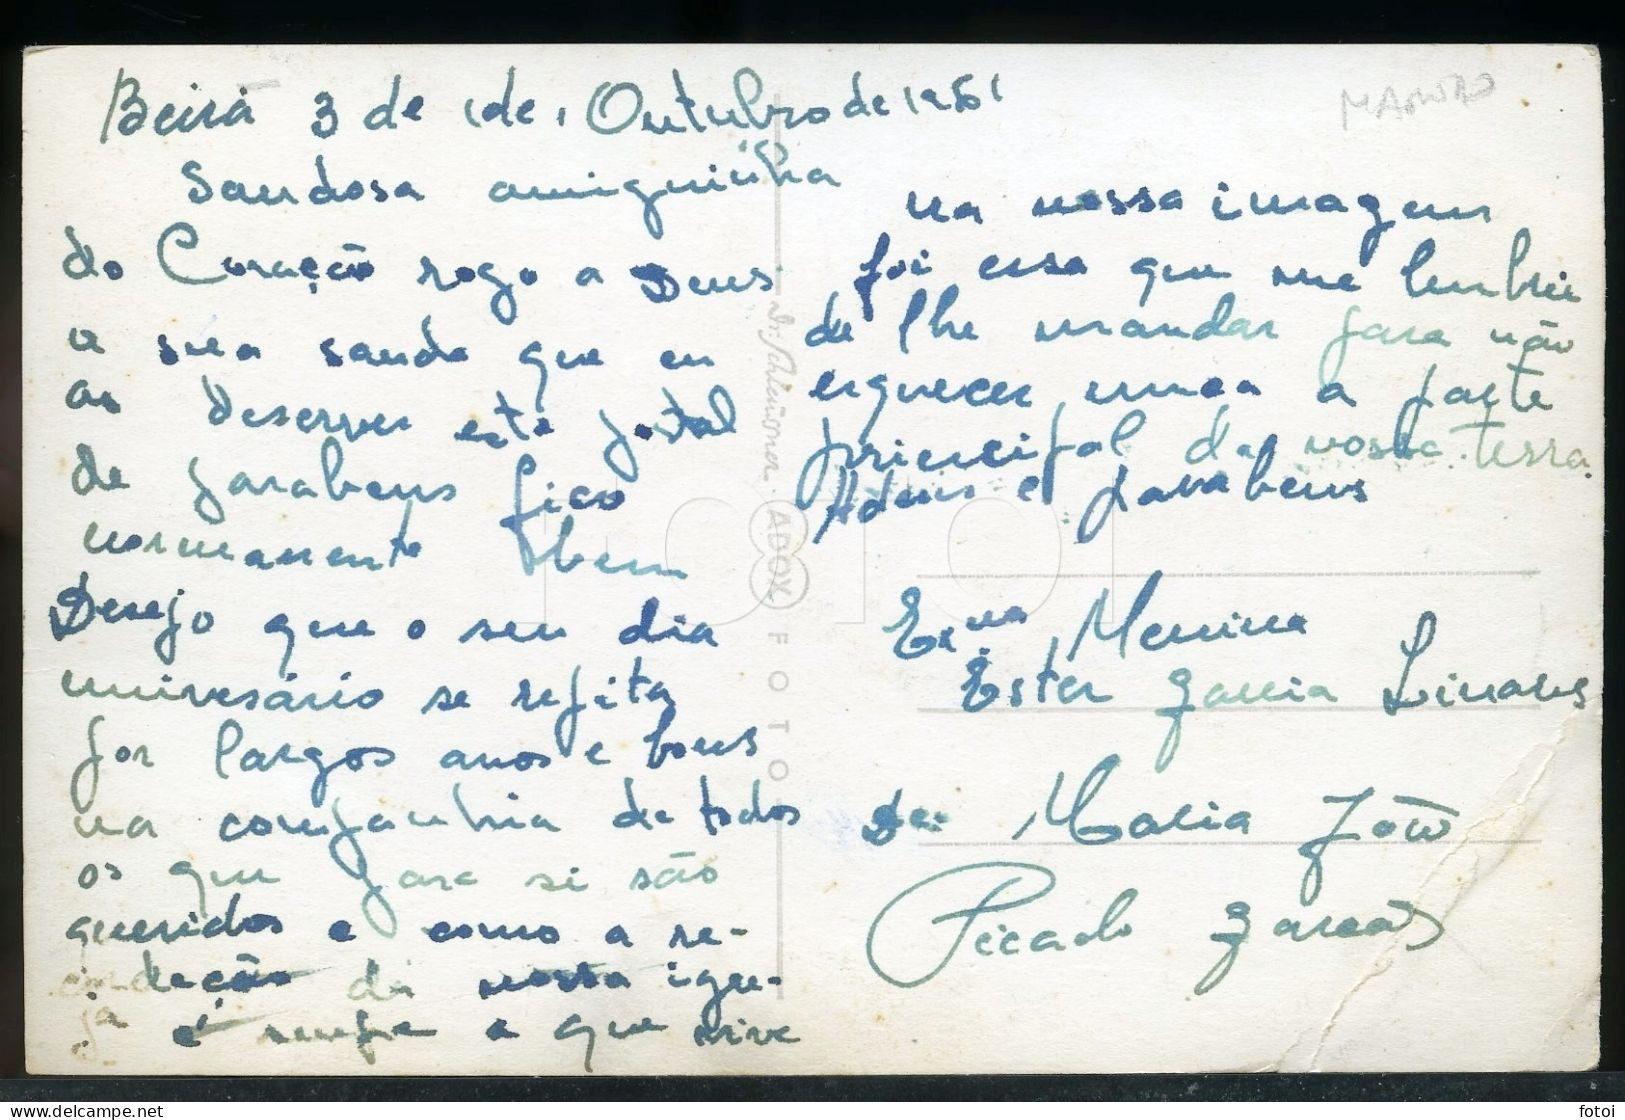 Beirã 3 de de Outubro de 1961
MARVÃO
Saudosa amiguinha
do Coração rogo a Deus
a sua saude que eu
ao deserver este postal
de parabens fico
normamente bem
Desejo que o seu dia
universário se repita
por largos anos e bons
na companhia de todos
os que para si são
queridos e como a re-
dação da nossa igre-
ja é sempre a que vive
na nossa imagem
foi essa que me lembrei
de lhe mandar para não
esquecer nunca a parte
principal da nossa terra
Adeus e parabens
Ex.ma Menina
Ester Garcia Linares
De: Maria João
Picado Garção
Dr. Schleussner ADOX FOTO
fotoi
fotoi